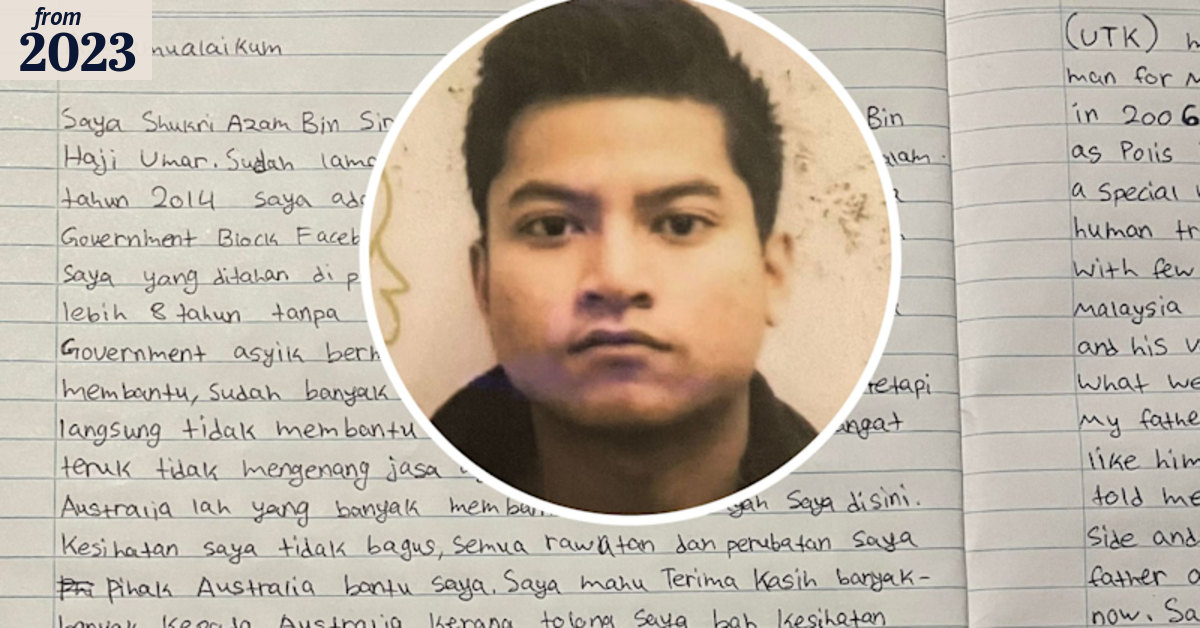 from
2023
mualaikum
Saya Shukri Azam Bin Sir Bin
Haji Umar. Sudah lama alam.
tahun 2014 saya ada
Government Block Faceb
Saya yang ditahan di p
lebih 8 tahun tanpa
Government asyik berh
membantu, sudah banyak tetapi
langsung tidak membantu angat
teruk tidak mengenang jasa
Australia lah yang banyak memban yah Saya disini.
Kesihatan saya tidak bagus, semua rawatan dan perubatan saya
Pihak Australia bantu saya. Saya mahu Terima Kasih banyak-
banyak Kepada Australia Kerana tolong saya bah kesihatan
(UTK) h
man for M
in 2006
as Polis
a special
human tr
with few
Malaysia
and his w
what we
My fathe
like him
told me
side and
father a
now. Sa